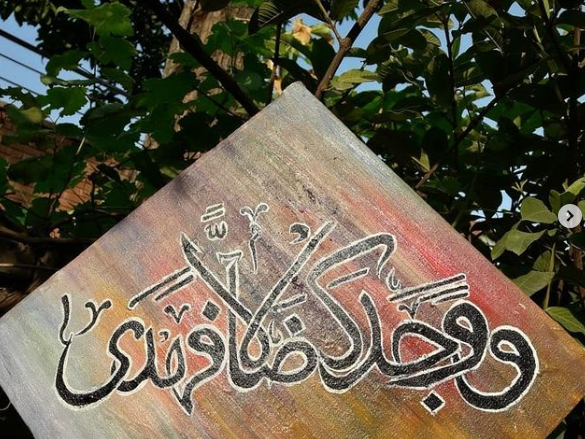 وَوَجَدَكَ ضَالًّا فَهَدَىٰ